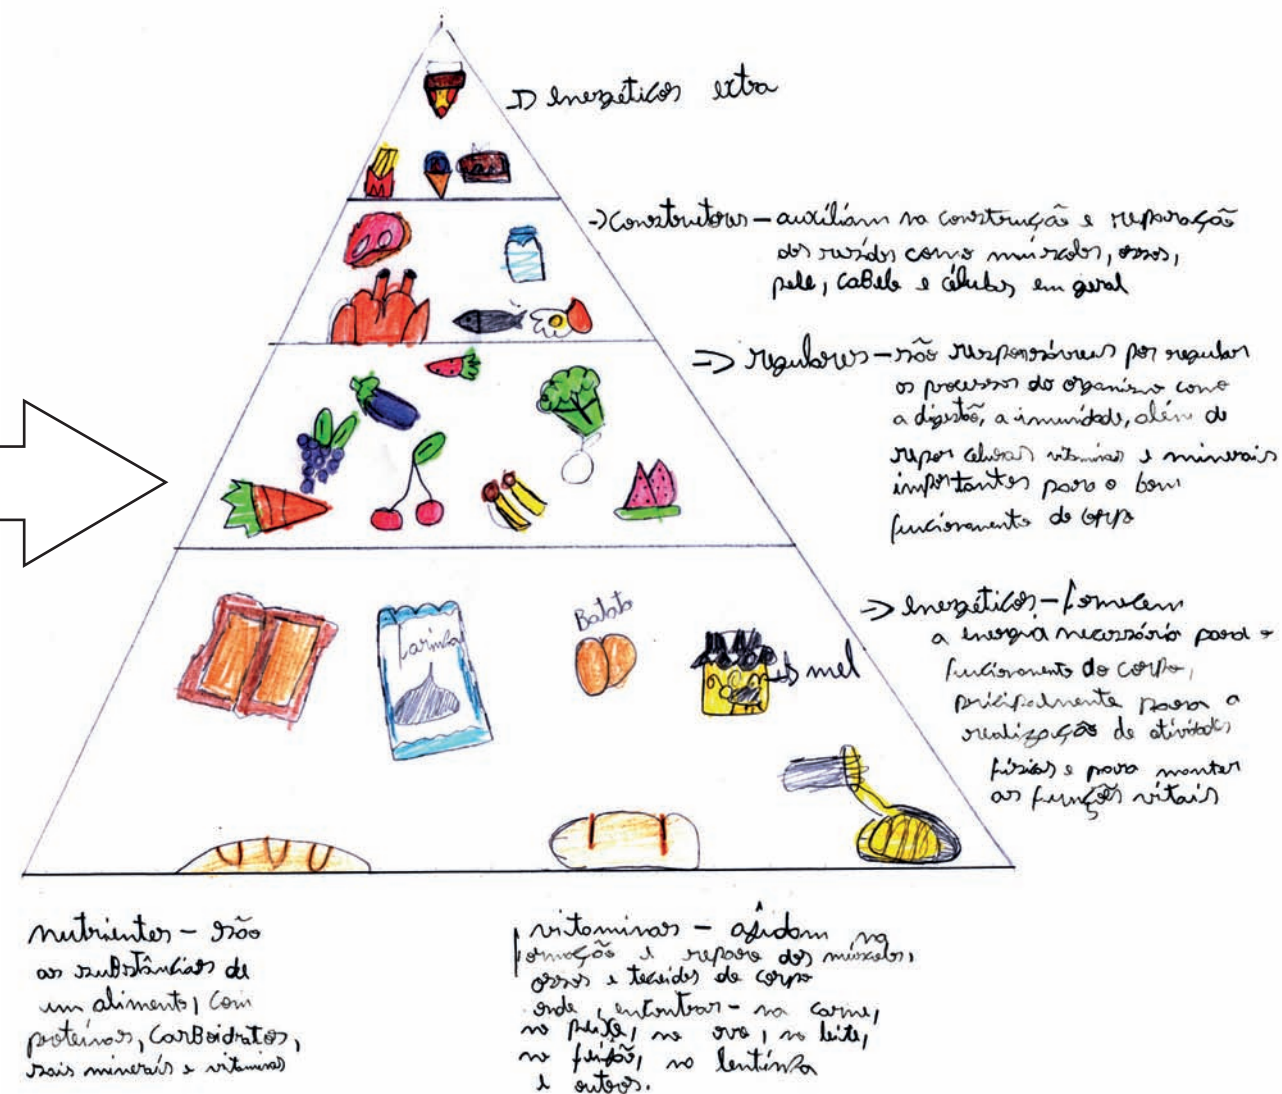 energéticos extra
construtores - auxiliam na construção e reparação
dos tecidos como músculos, ossos,
pele, cabelo e células em geral
reguladores - são responsáveis por regular
os processos do organismo como
a digestão, a imunidade, além de
repor vitaminas e minerais
importantes para o bom
funcionamento do corpo
farinha
Batata
mel
energéticos - fornecem
a energia necessário para o
funcionamento do corpo,
pricipalmente para a
realização de atividades
físicas e para manter
as funções vitais
nutrientes - são
as substâncias de
um alimento, com
proteínas, carboidratos,
sais minerais e vitaminas
vitaminas - ajudam na
formação e reparo dos músculos,
ossos e tecidos do corpo
onde encontrar - na carne,
no peixe, no ovo, no leite,
no feijão, no lentinha
e outros.